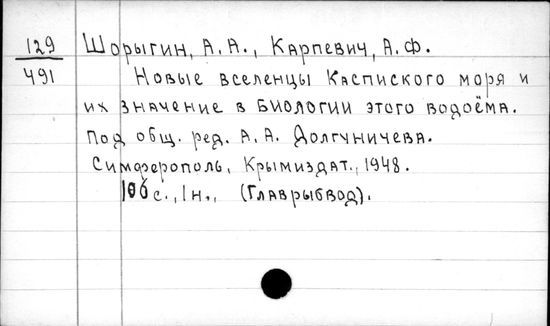 129 Шорыгин, А.А., Карпевич, А.Ф.
491 Новые вселенцы Каспиского моря и
их значение в биологии этого водоёма.
Под общ. ред. А.А. Долгуничева.
Симферополь, Крымиздат., 1948.
с., 1н., (Главрыбвод).